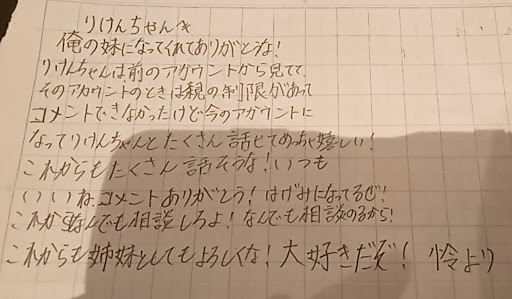 りけんちゃんへ
俺の妹になってくれてありがとうな!
りけんちゃんは前のアカウントから見てて
そのアカウントのときは親の制限があって
コメントできなかったけど今のアカウントに
なってりけんちゃんとたくさん話せてめっちゃ嬉しい!
これからもたくさん話そうな!いつも
いいね、コメントありがとう!はげみになってるぜ!
これからなんでも相談しろよ!なんでも相談のるから!
これからも姉妹としてもよろしくな!大好きだぞ!怜より